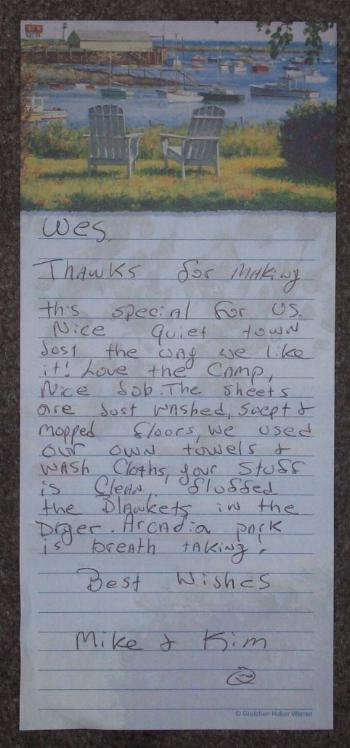 Wes,
Thanks for making
this special for us.
Nice quiet town
Just the way we like
it! Love the camp,
Nice Job. The sheets
are Just washed, swept &
mopped floors, we used
our own towels &
wash cloths, your stuff
is clean, fluffed
the blankets in the
Dryer. Arcadia park
is breath taking!
Best Wishes
Mike & Kim
© Gretchen Huber Warren